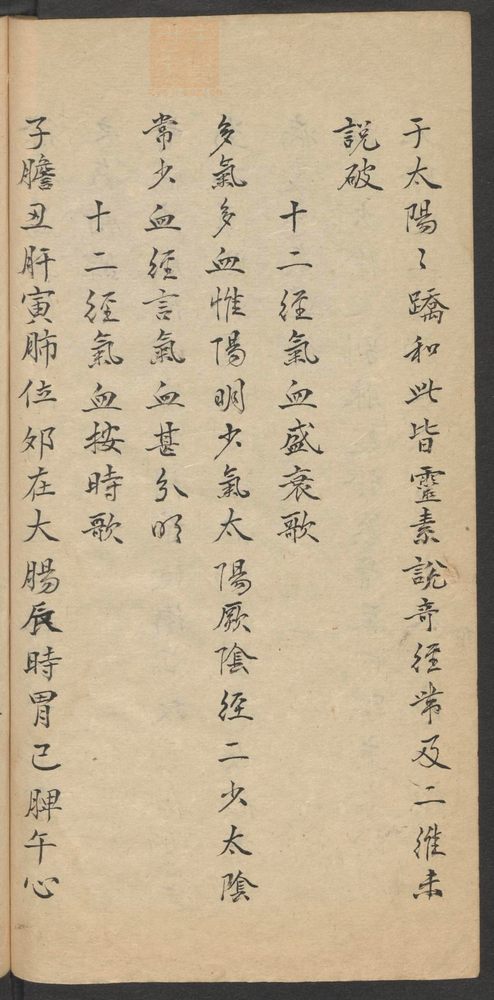 于太陽〻蹻和此皆靈素說奇經帶及二維未
說破
十二經氣血盛衰歌
多氣多血惟陽明少氣太陽厥陰經二少太陰
常少血經言氣血甚分明
十二經氣血按時歌
子膽丑肝寅肺位夘在大腸辰時胃巳脾午心